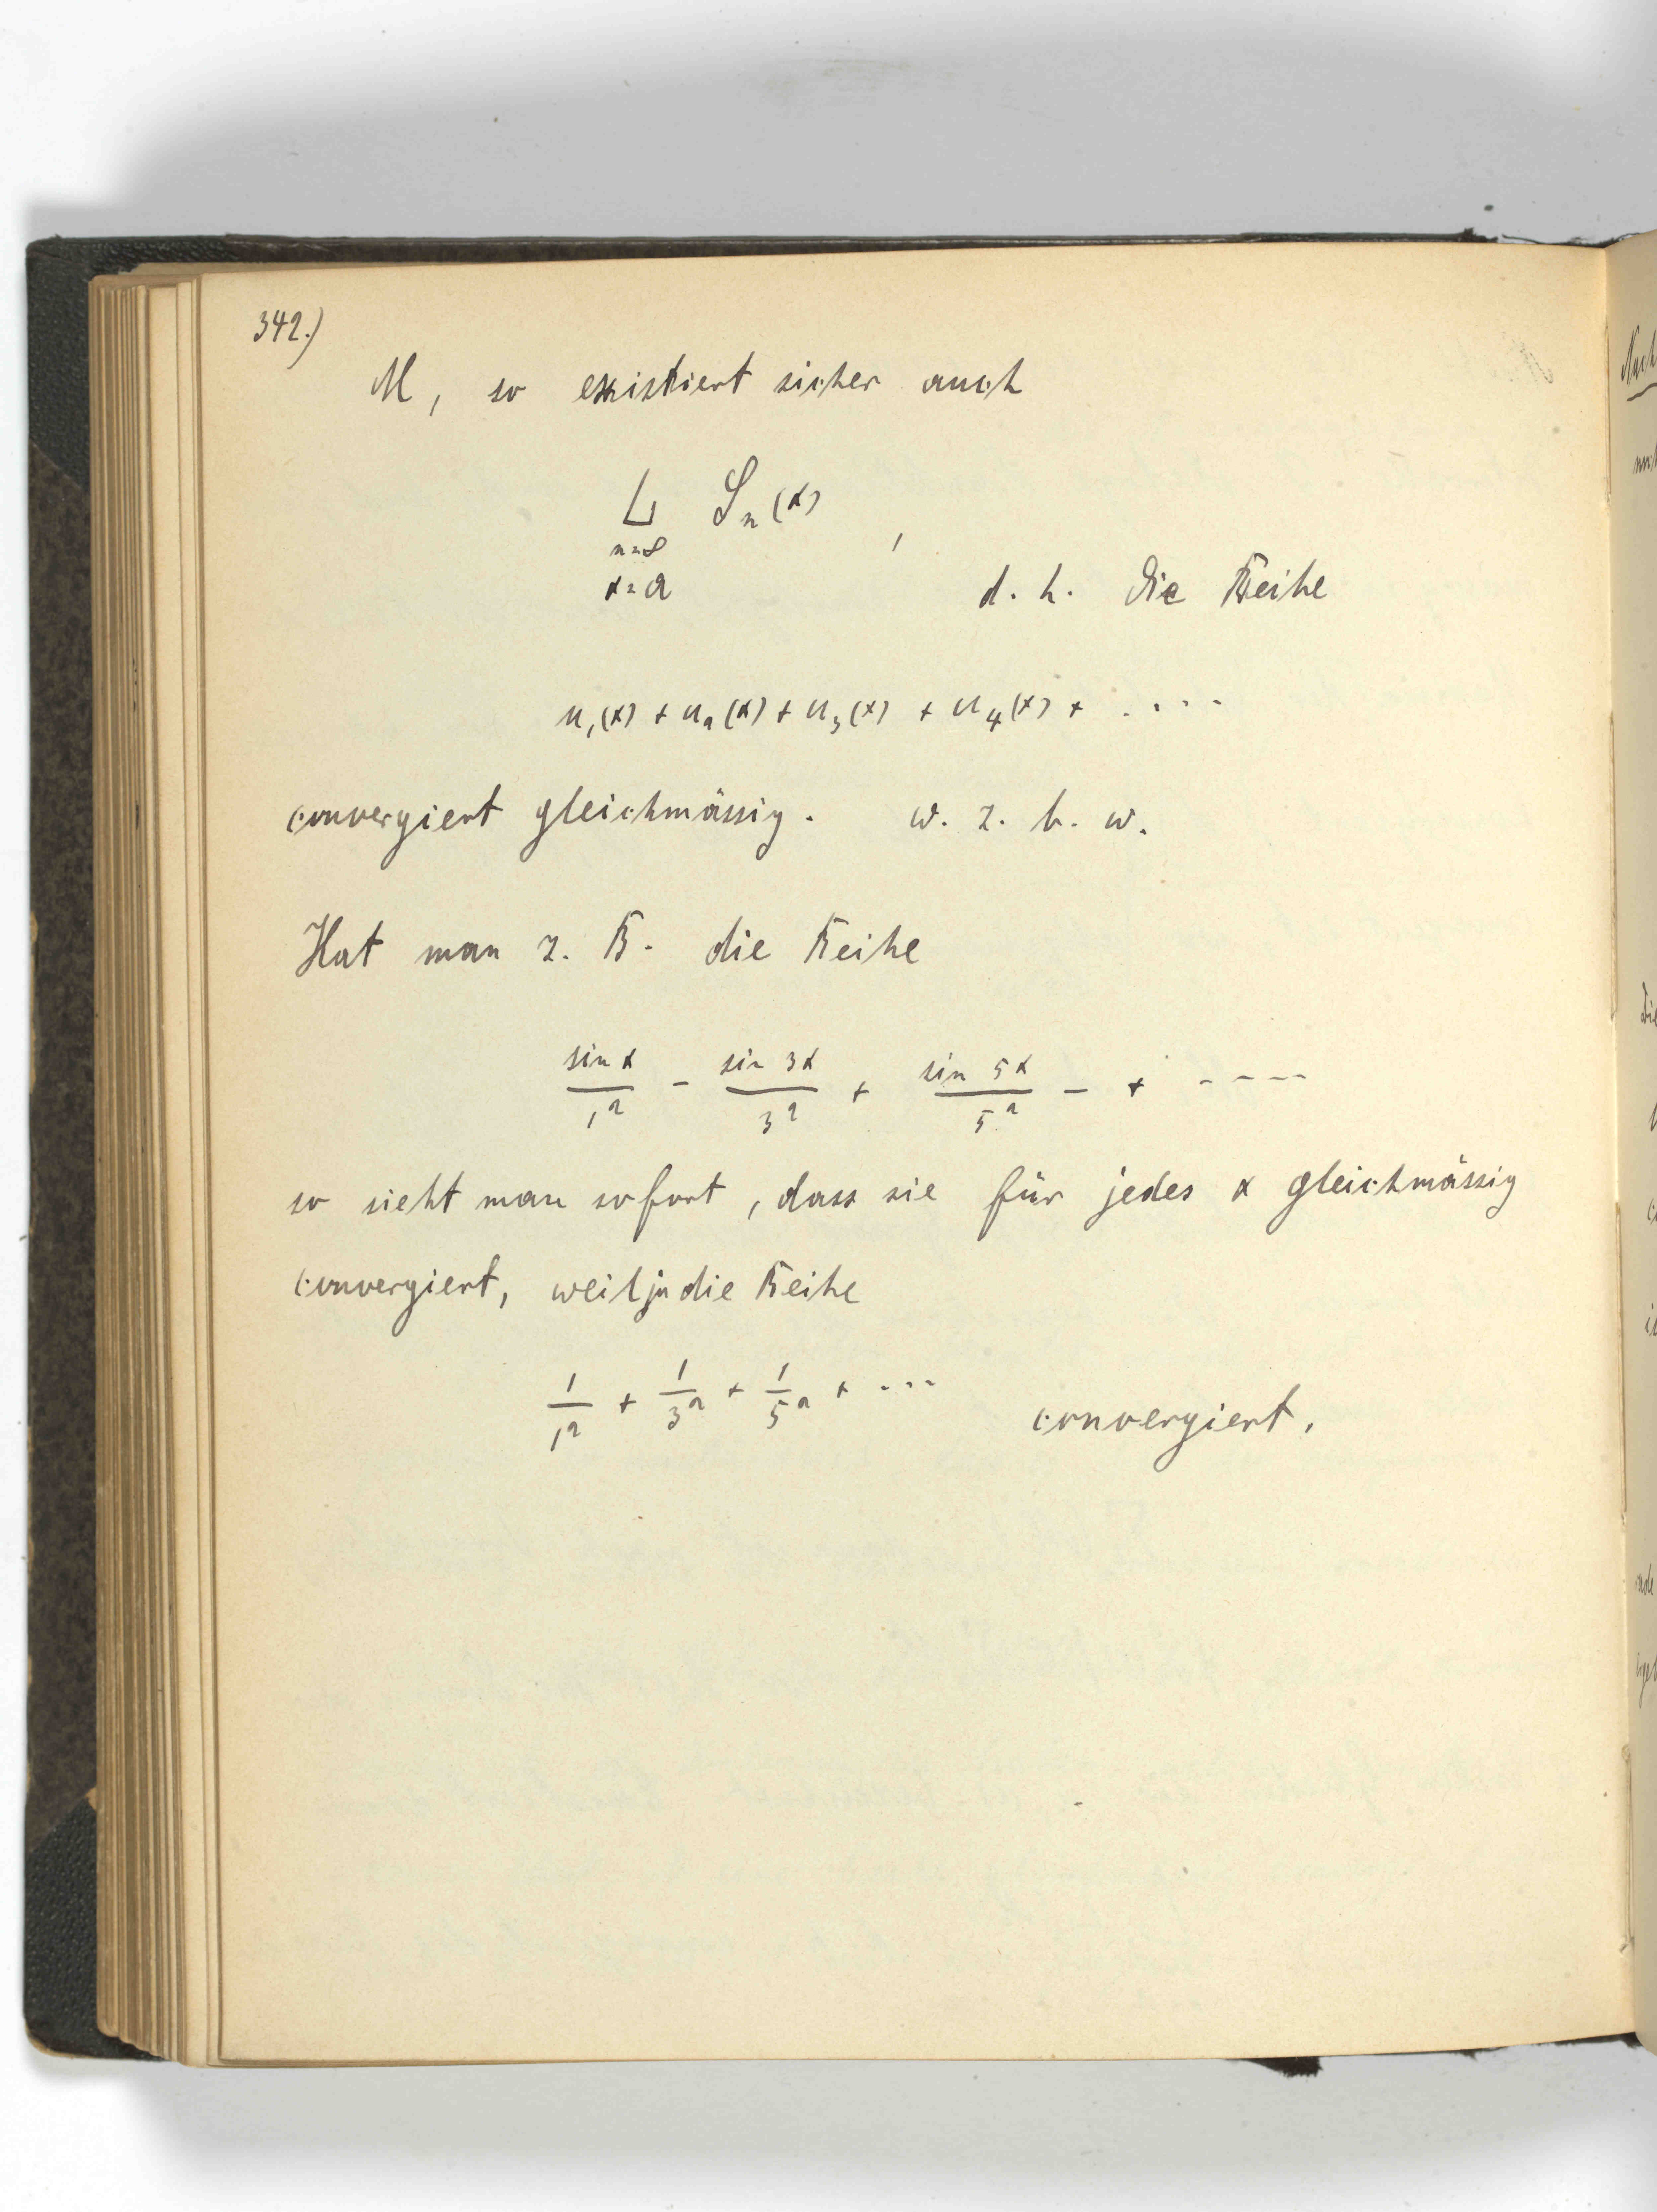 342.)
M, so existiert sicher auch
L Sₙ(x) ,
n=∞
x=a
d. h. die Reihe
u₁(x) + u₂(x) + u₃(x) + u₄(x) + ....
convergiert gleichmässig. w. z. b. w.
Hat man z. B. die Reihe
sin x / 1² - sin 3x / 3² + sin 5x / 5² - + ----
so sieht man sofort, dass sie für jedes x gleichmässig
convergiert, weil ja die Reihe
1/1² + 1/3² + 1/5² + ... convergiert.